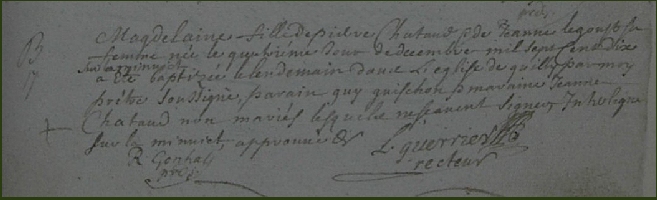 B
Magdelaine fille de pierre Chataud & de Jeanne legoust sa
femme née le quatrième Jour de decembre mil sept cent dix
a été baptizée le lendemain dans L'eglise de par moy
prêtre soussigné, parain guy guischon & maraine Jeanne
Chataud non mariés lesquels ne scavent signer Interligne
sur la minuet approuvé &
L. guerrier
R
recteur